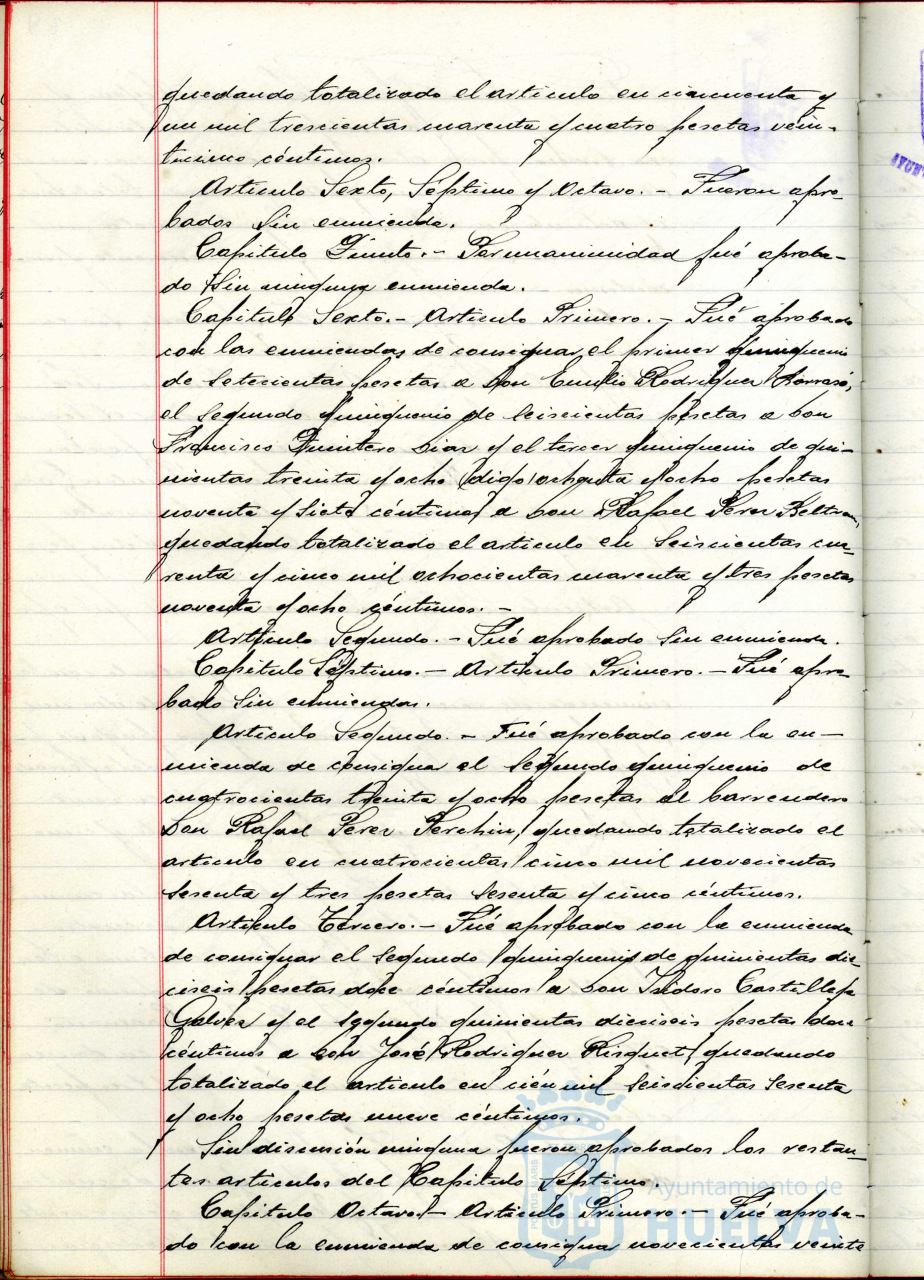 quedando totalizado el articulo en cincuenta y
un mil trescientas cuarenta y cuatro pesetas vein-
ticinco céntimos.
Articulo Sexto, Séptimo y Octavo. - Fueron apro-
bados sin enmienda.
Capitulo Quinto. - Por unanimidad fué aproba-
do sin ninguna enmienda.
Capitulo Sexto. - Articulo Primero. - Fué aprobado
con las enmiendas de consignar el primer quinquenio
de setecientas pesetas a Don Emilio Rodriguez
el segundo quinquenio de seiscientas pesetas a Don
Francisco Quintero Diaz y el tercer quinquenio de qui-
nientas treinta y ocho digo ochenta y ocho pesetas
noventa y siete céntimos a Don Rafael Perez Beltran,
quedando totalizado el articulo en seiscientas cua-
renta y cinco mil ochocientas cuarenta y tres pesetas
noventa y ocho céntimos. -
Articulo Segundo. - Fué aprobado sin enmienda.
Capitulo Séptimo. - Articulo Primero. - Fué apro-
bado sin enmiendas.
Articulo Segundo. - Fué aprobado con la en-
mienda de consignar el segundo quinquenio de
cuatrocientas treinta y ocho pesetas al barrendero
Don Rafael Perez Perchin, quedando totalizado el
articulo en cuatrocientas cinco mil novecientas
sesenta y tres pesetas sesenta y cinco céntimos.
Articulo Tercero. - Fué aprobado con la enmienda
de consignar el segundo quinquenio de quinientas die-
ciseis pesetas doce céntimos a Don Isidoro Castilleja
Galvez y el segundo quinientas dieciseis pesetas doce
céntimos a Don José Rodriguez Risquet, quedando
totalizado el articulo en cién mil seiscientas sesenta
y ocho pesetas nueve céntimos.
Sin discusión ninguna fueron aprobados los restan-
tes articulos del Capitulo Séptimo.
Capitulo Octavo - Articulo Primero. - Fué aproba-
do con la enmienda de consignar novecientas veinte
Ayuntamiento de
HUELVA